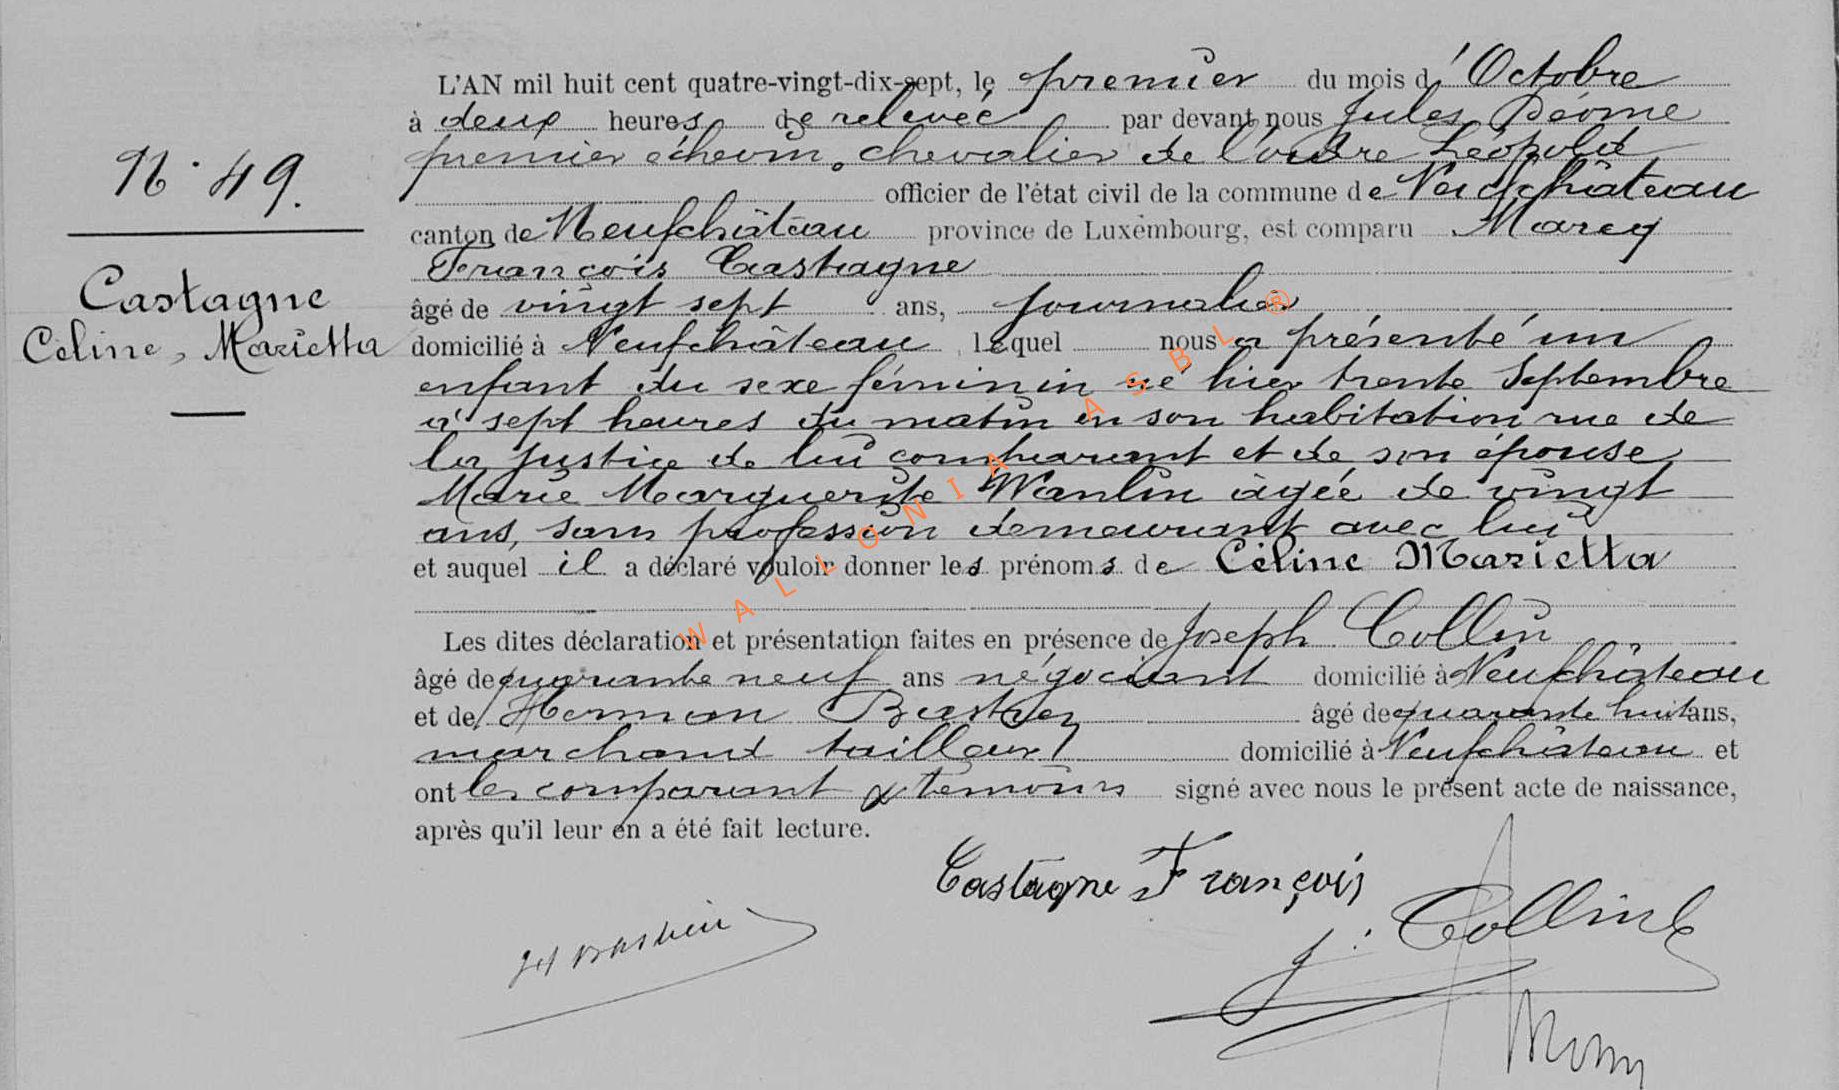 N° 49.
Castagne
Céline, Marietta
L'AN mil huit cent quatre-vingt-dix-sept, le premier du mois d'Octobre
à deux heures de relevée par devant nous Jules Déome
premier échevin, chevalier de l'ordre Léopold
officier de l'état civil de la commune de Neufchâteau
canton de Neufchâteau province de Luxembourg, est comparu Marcq
François Castagne
âgé de vingt sept ans, journalier
domicilié à Neufchâteau, lequel nous a présenté un
enfant du sexe féminin né hier trente Septembre
à sept heures du matin en son habitation rue de
la justice de lui comparant et de son épouse
Marie Marguerite Wanlin âgée de vingt
ans, sans profession demeurant avec lui
et auquel il a déclaré vouloir donner les prénoms de Céline Marietta
Les dites déclaration et présentation faites en présence de Joseph Collin
âgé de quarante neuf ans négociant domicilié à Neufchâteau
et de Herman âgé de quarante huit ans,
marchand tailleur domicilié à Neufchâteau et
ont les comparant & témoins signé avec nous le présent acte de naissance,
après qu'il leur en a été fait lecture.
Castagne François
J. Collin
WALLONIA ASBL ®